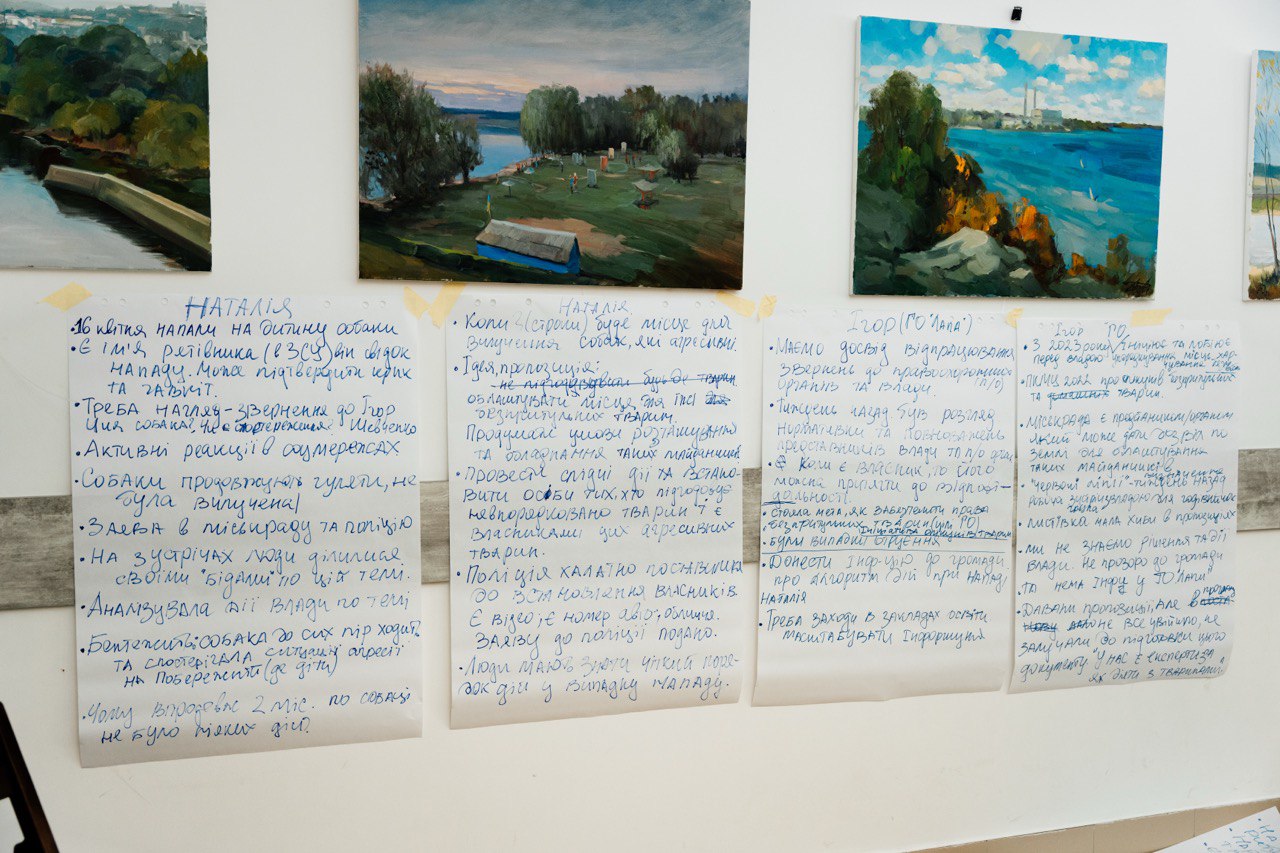 НАТАЛІЯ
• 16 квітня напали на дитину собаки
• Є ім'я рятівника (в ЗСУ) він свідок
нападу. Може підтвердити крик
та гавкіт.
• Треба нагляд - звернення до Ігор
Ция собака? Чи спостереження Шевченко
• Активні реакції в соцмережах
• Собаки продовжують гуляти, не
була вилучена!
• Заява в міськраду та поліцію
• На зустрічах люди ділилися
своїми "бідами" по цій темі.
• Аналізувала дії влади по темі
• Бентежить: собака до сих пір ходить
та спостерігала ситуації агресії
на Побережжі (де діти)
• Чому впродовж 2 міс. по собаці
не було ніяких дій?
НАТАЛІЯ
• Коли? (строки) буде місце для
вилучення собак, які агресивні.
• Ідея, пропозиція:
- не підгодовувати будь-де тварин
облаштувати місця для їжі
безпритульних тварин.
Продумати умови розташування
та обладнання таких майданчиків
• Провести слідчі дії та встано-
вити особи тих, хто підгодовує
невпорядковано тварин і є
власниками цих агресивних
тварин.
• Поліція халатно поставилися
до встановлення власників
Є відео; є номер авто, обличчя.
Заяву до поліції подано.
• Люди мають знати чіткий поря-
док дій у випадку нападу.
Ігор (ГО "Лапа")
• Маємо досвід відпрацювання
звернень до правоохоронних
органів та влади. (п/о)
• Тиждень назад був розгляд
нормативки та повноважень
представників влади та про дії
• Коли є власник, то його
можна притягти до відпові-
дальності.
• Стояла мета, як забезпечити права
безпритульних тварин (цілі ГО)
• Були випадки отруєння
• Донести інф-цію до громади
про алгоритм дій при нападі
НАТАЛІЯ
• Треба заходи в закладах освіти
масштабувати інформацію
Ігор ГО
• З 2023 року ініціює та лобіює
перед владою розташування місць хар-
чування
ПКМУ 2022 про опікування безпритульних
тварин.
• Міськрада є
який може дати дозвіл по
землі для облаштування
таких майданчиків
• "Червоні лінії" - тиждень назад
• листівка мала хиби в пропозиціях
• ми не знаємо рішення та дії
влади. Не прозоро до громади
та нема інфи у ГО "Лапи"
• Давали пропозиції, але
не все увійшло, не
залучали до підготовки цього
документу "У нас є експертиза
як діяти з тваринами".